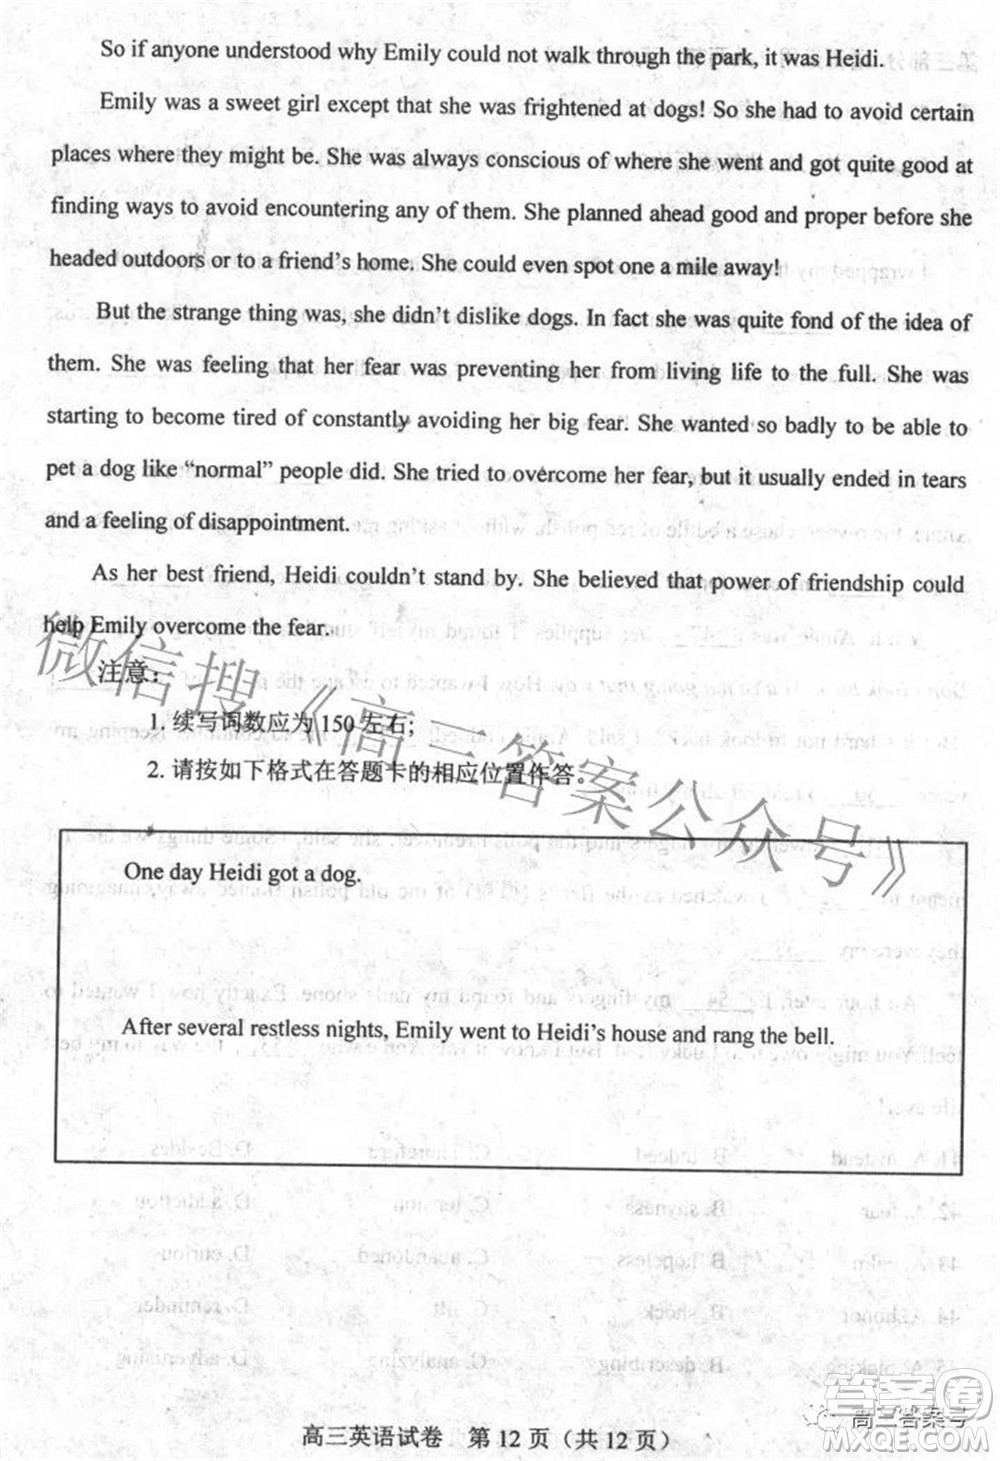 So if anyone understood why Emily could not walk through the park, it was Heidi.
Emily was a sweet girl except that she was frightened at dogs! So she had to avoid certain
places where they might be. She was always conscious of where she went and got quite good at
finding ways to avoid encountering any of them. She planned ahead good and proper before she
headed outdoors or to a friend's home. She could even spot one a mile away!
But the strange thing was, she didn't dislike dogs. In fact she was quite fond of the idea of
them. She was feeling that her fear was preventing her from living life to the full. She was
starting to become tired of constantly avoiding her big fear. She wanted so badly to be able to
pet a dog like “normal” people did. She tried to overcome her fear, but it usually ended in tears
and a feeling of disappointment.
As her best friend, Heidi couldn't stand by. She believed that power of friendship could
help Emily overcome the fear.
注意：
1. 续写词数应为 150 左右;
2. 请按如下格式在答题卡的相应位置作答。
微信搜《高三答案公众号》
One day Heidi got a dog.
After several restless nights, Emily went to Heidi's house and rang the bell.
答案圈
高三答案号
MXQE.COM
高三英语试卷 第 12 页（共 12 页）